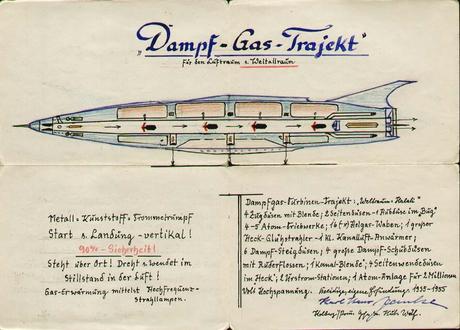 „Dampf-Gas-Trajekt"
für den Luftraum u. Weltallraum
Metall- Kunststoff- Trommelrumpf
Start u. Landung - vertikal!
90%-Sicherheit!
Steht über Ort! Dreht u. wendet im
Stillstand in der Luft!
Gas-Erwärmung mittelst Hochfrequenz-
Strahllampen.
Dampfgas-Turbinen-Trajekt: „Weltraum-
4 Zugdüsen mit Blende, 2 Seitendüsen - 1 im „Bug"
4-5 Atom-Triebwerke; Helgas-Waben, 1 großer
Heck-Glühstrahler - 1 kl. Kanalluft-Anwärmer,
6 Dampf-Steigdüsen; 4 große Dampf-Schubdüsen
mit Ruderflossen; 1 Kanal-Blende; 4 Seitenwendedüsen
im Heck"; 2 -Stationen; 1 Atom-Anlage für 2 Millionen
Volt Hochspannung. eigene Erfindung 1935-1955
Karl Hans